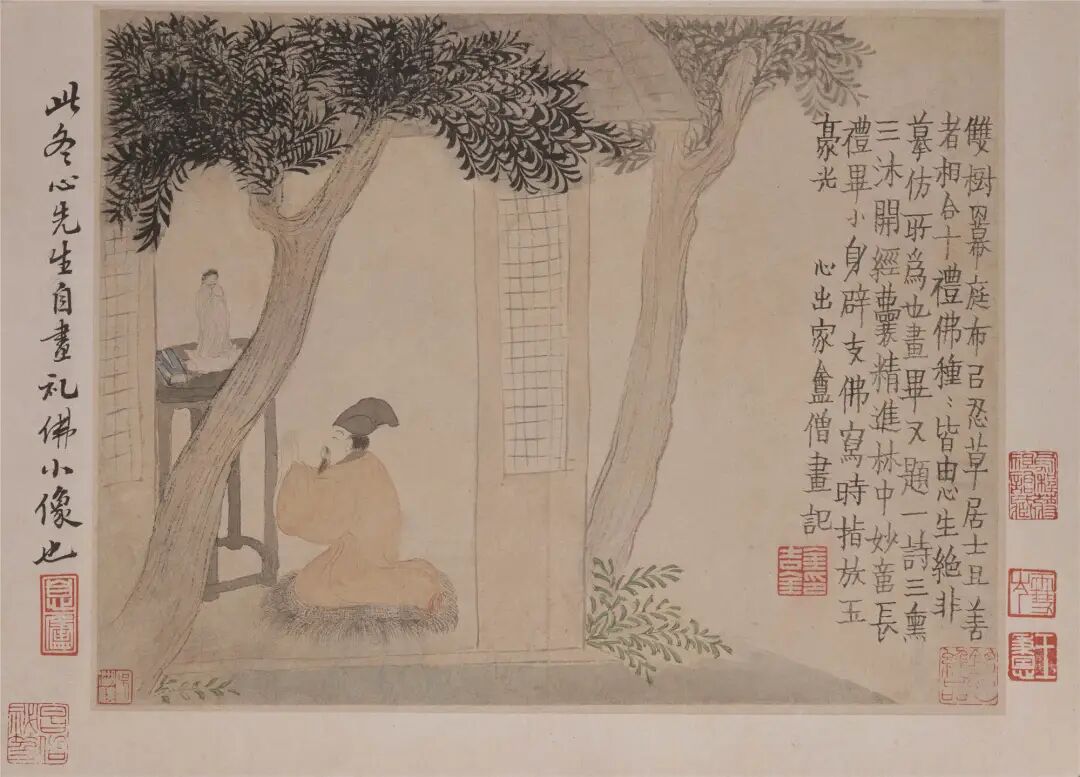 雙樹羃庭布㠯忍草居士且善
者相合十禮佛種〻皆由心生絕非
摹仿所爲也畫畢又題一詩三熏
三沐開經囊精進林中妙童長
禮畢小身辟支佛寫時指放玉
豪光　心出家盦僧畫記
金吉金印
此冬心先生自畫礼佛小像也
息盧
王秉恩